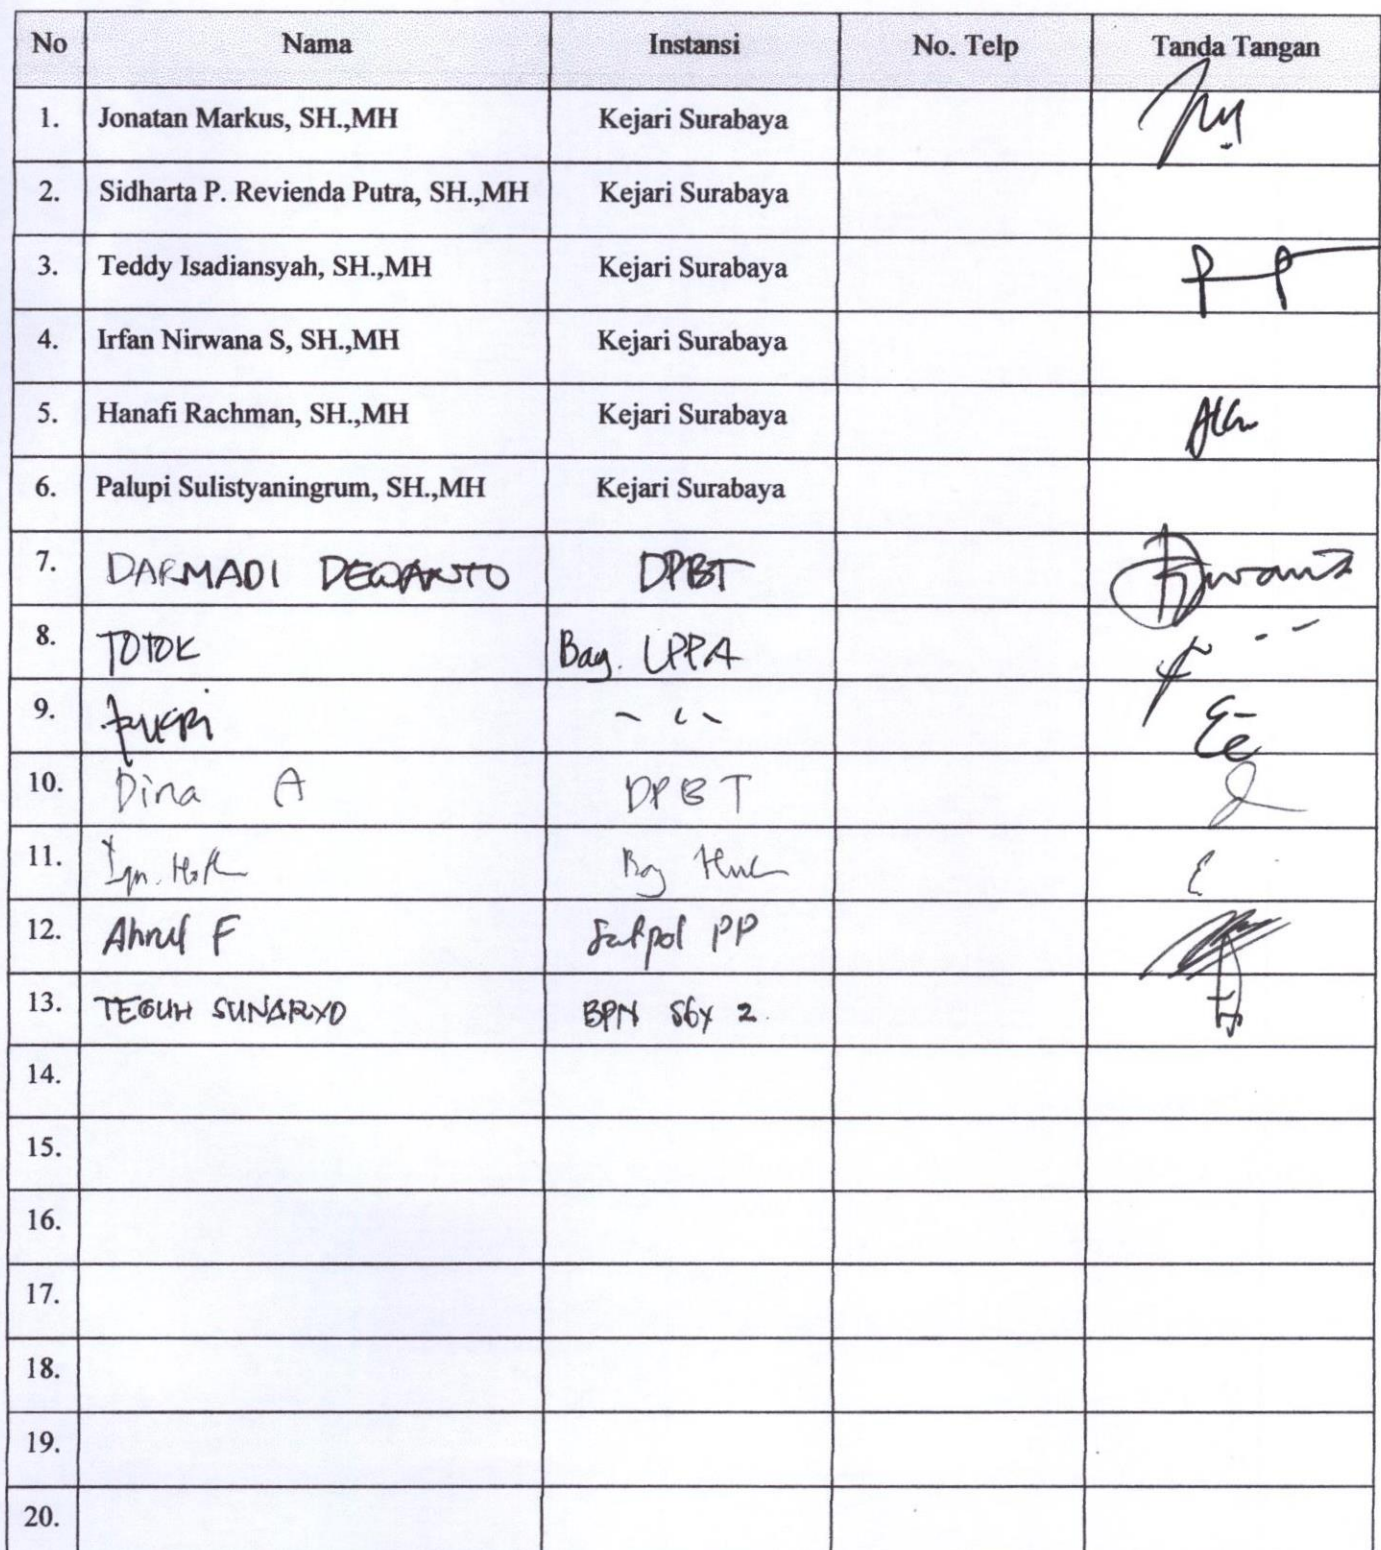 No Nama Instansi No. Telp Tanda Tangan
1. Jonatan Markus, SH.,MH Kejari Surabaya
2. Sidharta P. Revienda Putra, SH.,MH Kejari Surabaya
3. Teddy Isadiansyah, SH.,MH Kejari Surabaya
4. Irfan Nirwana S, SH.,MH Kejari Surabaya
5. Hanafi Rachman, SH.,MH Kejari Surabaya
6. Palupi Sulistyaningrum, SH.,MH Kejari Surabaya
7. DARMADI DEWANTO DPBT
8. TOTOK Bag. LPPA
9.
10. Dina A DPBT
11. Bag
12. Ahrul F Satpol PP
13. TEGUH SUNARYO BPN Sby 2
14.
15.
16.
17.
18.
19.
20.